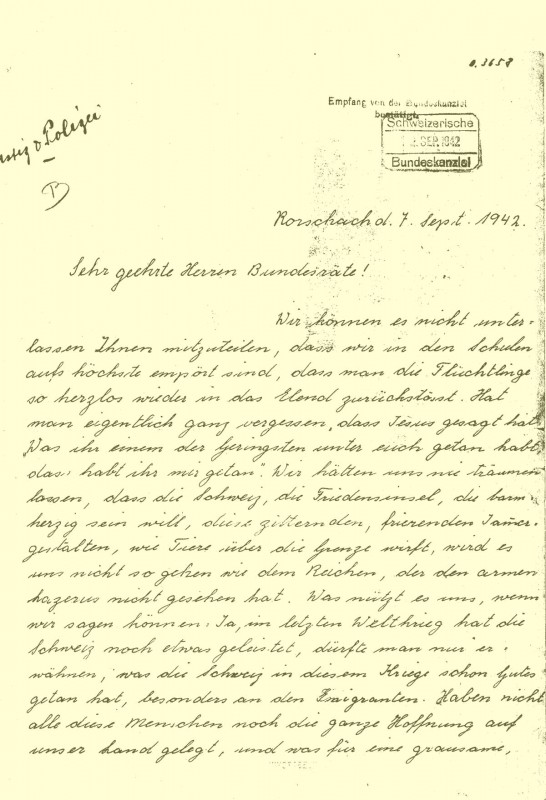 0.3653
Empfang von der Bundeskanzlei
bestätigt.
Schweizerische
SEP. 1942
Bundeskanzlei
Polizei
B
Rorschach d. 7. Sept. 1942.
Sehr geehrte Herren Bundesräte!
Wir können es nicht unter-
lassen Ihnen mitzuteilen, dass wir in den Schulen
aufs höchste empört sind, dass man die Flüchtlinge
so herzlos wieder in das Elend zurückstösst. Hat
man eigentlich ganz vergessen, dass Jesus gesagt hat
„Was ihr einem der Geringsten unter euch getan habt,
das habt ihr mir getan". Wir hätten uns nie träumen
lassen, dass die Schweiz, die Friedensinsel, die barm-
herzig sein will, diese zitternden, frierenden Jammer-
gestalten, wie Tiere über die Grenze wirft, wird es
uns nicht so gehen wie dem Reichen, der den armen
Lazarus nicht gesehen hat. Was nützt es uns, wenn
wir sagen können: Ja, im letzten Weltkrieg hat die
Schweiz noch etwas geleistet, dürfte man nur er-
wähnen, was die Schweiz in diesem Kriege schon Gutes
getan hat, besonders an den Emigranten. Haben nicht
alle diese Menschen noch die ganze Hoffnung auf
unser Land gelegt, und was für eine grausame,